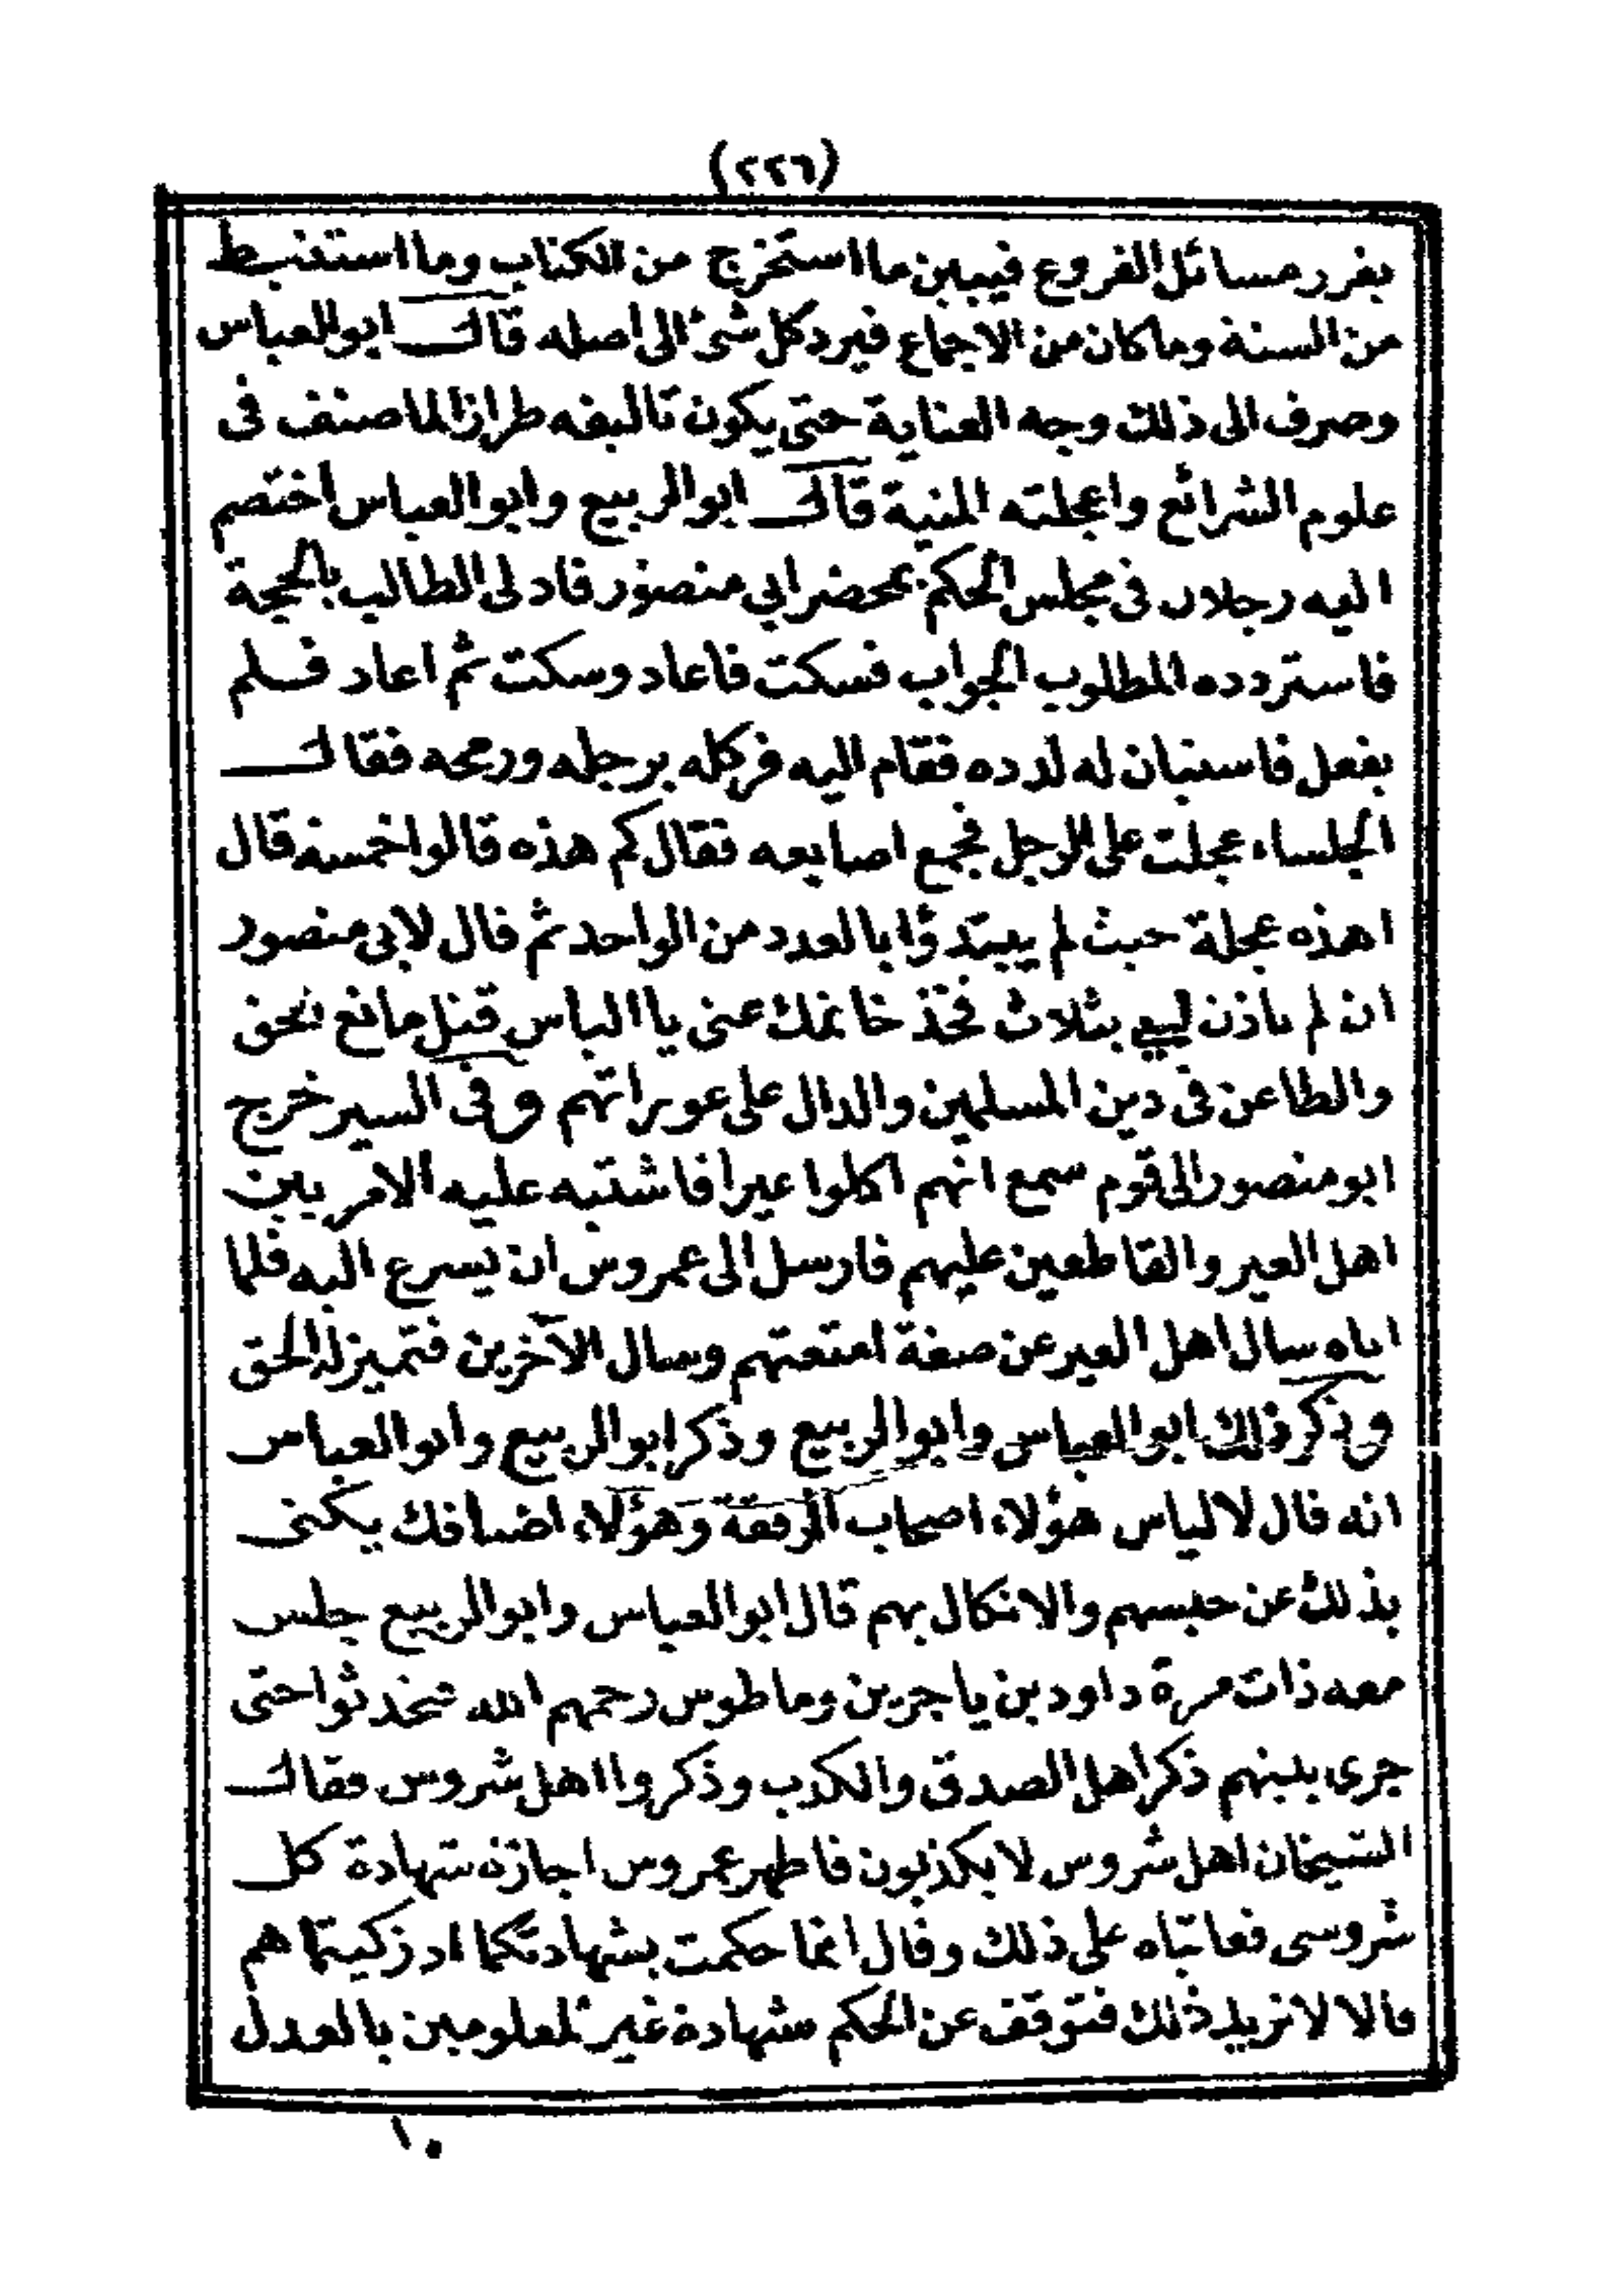 (٢٢٦)
يفرر مسائل الفروع فيبين ما استخرج من الكتاب وما استنبط
من السنة وما كان من الاجماع فيرد كل شئ الى اصله قال ابو العباس
وصرف الى ذلك وجه العناية حتى يكون تاليفه طرازا لما صنف فى
علوم الشرائع واعجلته المنية قال ابو الربيع وابو العباس اختصم
اليه رجلان فى مجلس الحكم بمحضر ابي منصور فادلى الطالب بالحجة
فاستردده المطلوب الجواب فسكت فاعاد وسكت ثم اعاد فلم
يفعل فاستبان له لدده فقام اليه فركله برجله ورمحه فقال
الجلساء عجلت على الرجل فجمع اصابعه فقال كم هذه قالوا خمسة قال
اهذه عجلة حيث لم يبتدؤا بالعدد من الواحد ثم قال لابى منصور
ان لم تاذن لي بثلاث فخذ خاتمك عنى يا الياس قتل مانع الحق
والطاعن فى دين المسلمين والدال على عوراتهم وفى السير خرج
ابو منصور الى قوم سمع انهم اكلوا عيرا فاشتبه عليه الامر بين
اهل العير والقاطعين عليهم فارسل الى عمروس ان يسرع اليه فلما
اتاه سال اهل العير عن صفة امتعتهم وسال الآخرين فتميز له الحق
وذكر ذلك ابو العباس وابو الربيع وذكر ابو الربيع وابو العباس
انه قال لالياس هؤلاء اصحاب الرفقة وهؤلاء اضيافك يكنى
بذلك عن حبسهم والانكال بهم قال ابو العباس وابو الربيع جلس
معه ذات مرة داود بن ياجرين وماطوس رحمهم الله فتحدثوا حتى
جرى بينهم ذكر اهل الصدق والكذب وذكروا اهل شروس فقال
الشيخان اهل شروس لا يكذبون فاظهر عمروس اجازة شهادة كل
شروسى فعاتباه على ذلك وقال انما حكمت بشهادتكما اذ زكيتما هم
قالا لا نريد ذلك فتوقف عن الحكم شهادة غير المعلومين بالعدل
١٠